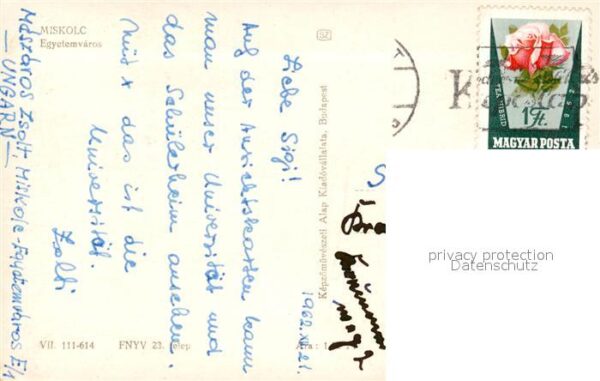 MISKOLC
Egyetemváros
SZ
Liebe Sigi!
Auf der Ansichtskarten kann
man unser Universität und
das Schülerheim ansehen.
Mit x das ist die
Universität.
Zolti
1962.XI.21.
Mészáros Zsolt Miskolc-Egyetemváros E/1
— UNGARN —
Képzőművészeti Alap Kiadóvállalata, Budapest
VII. 111-614
FNYV 23. telep
Ára: 1
TEA HIBRID
1Ft
1962
MAGYAR POSTA
privacy protection
Datenschutz